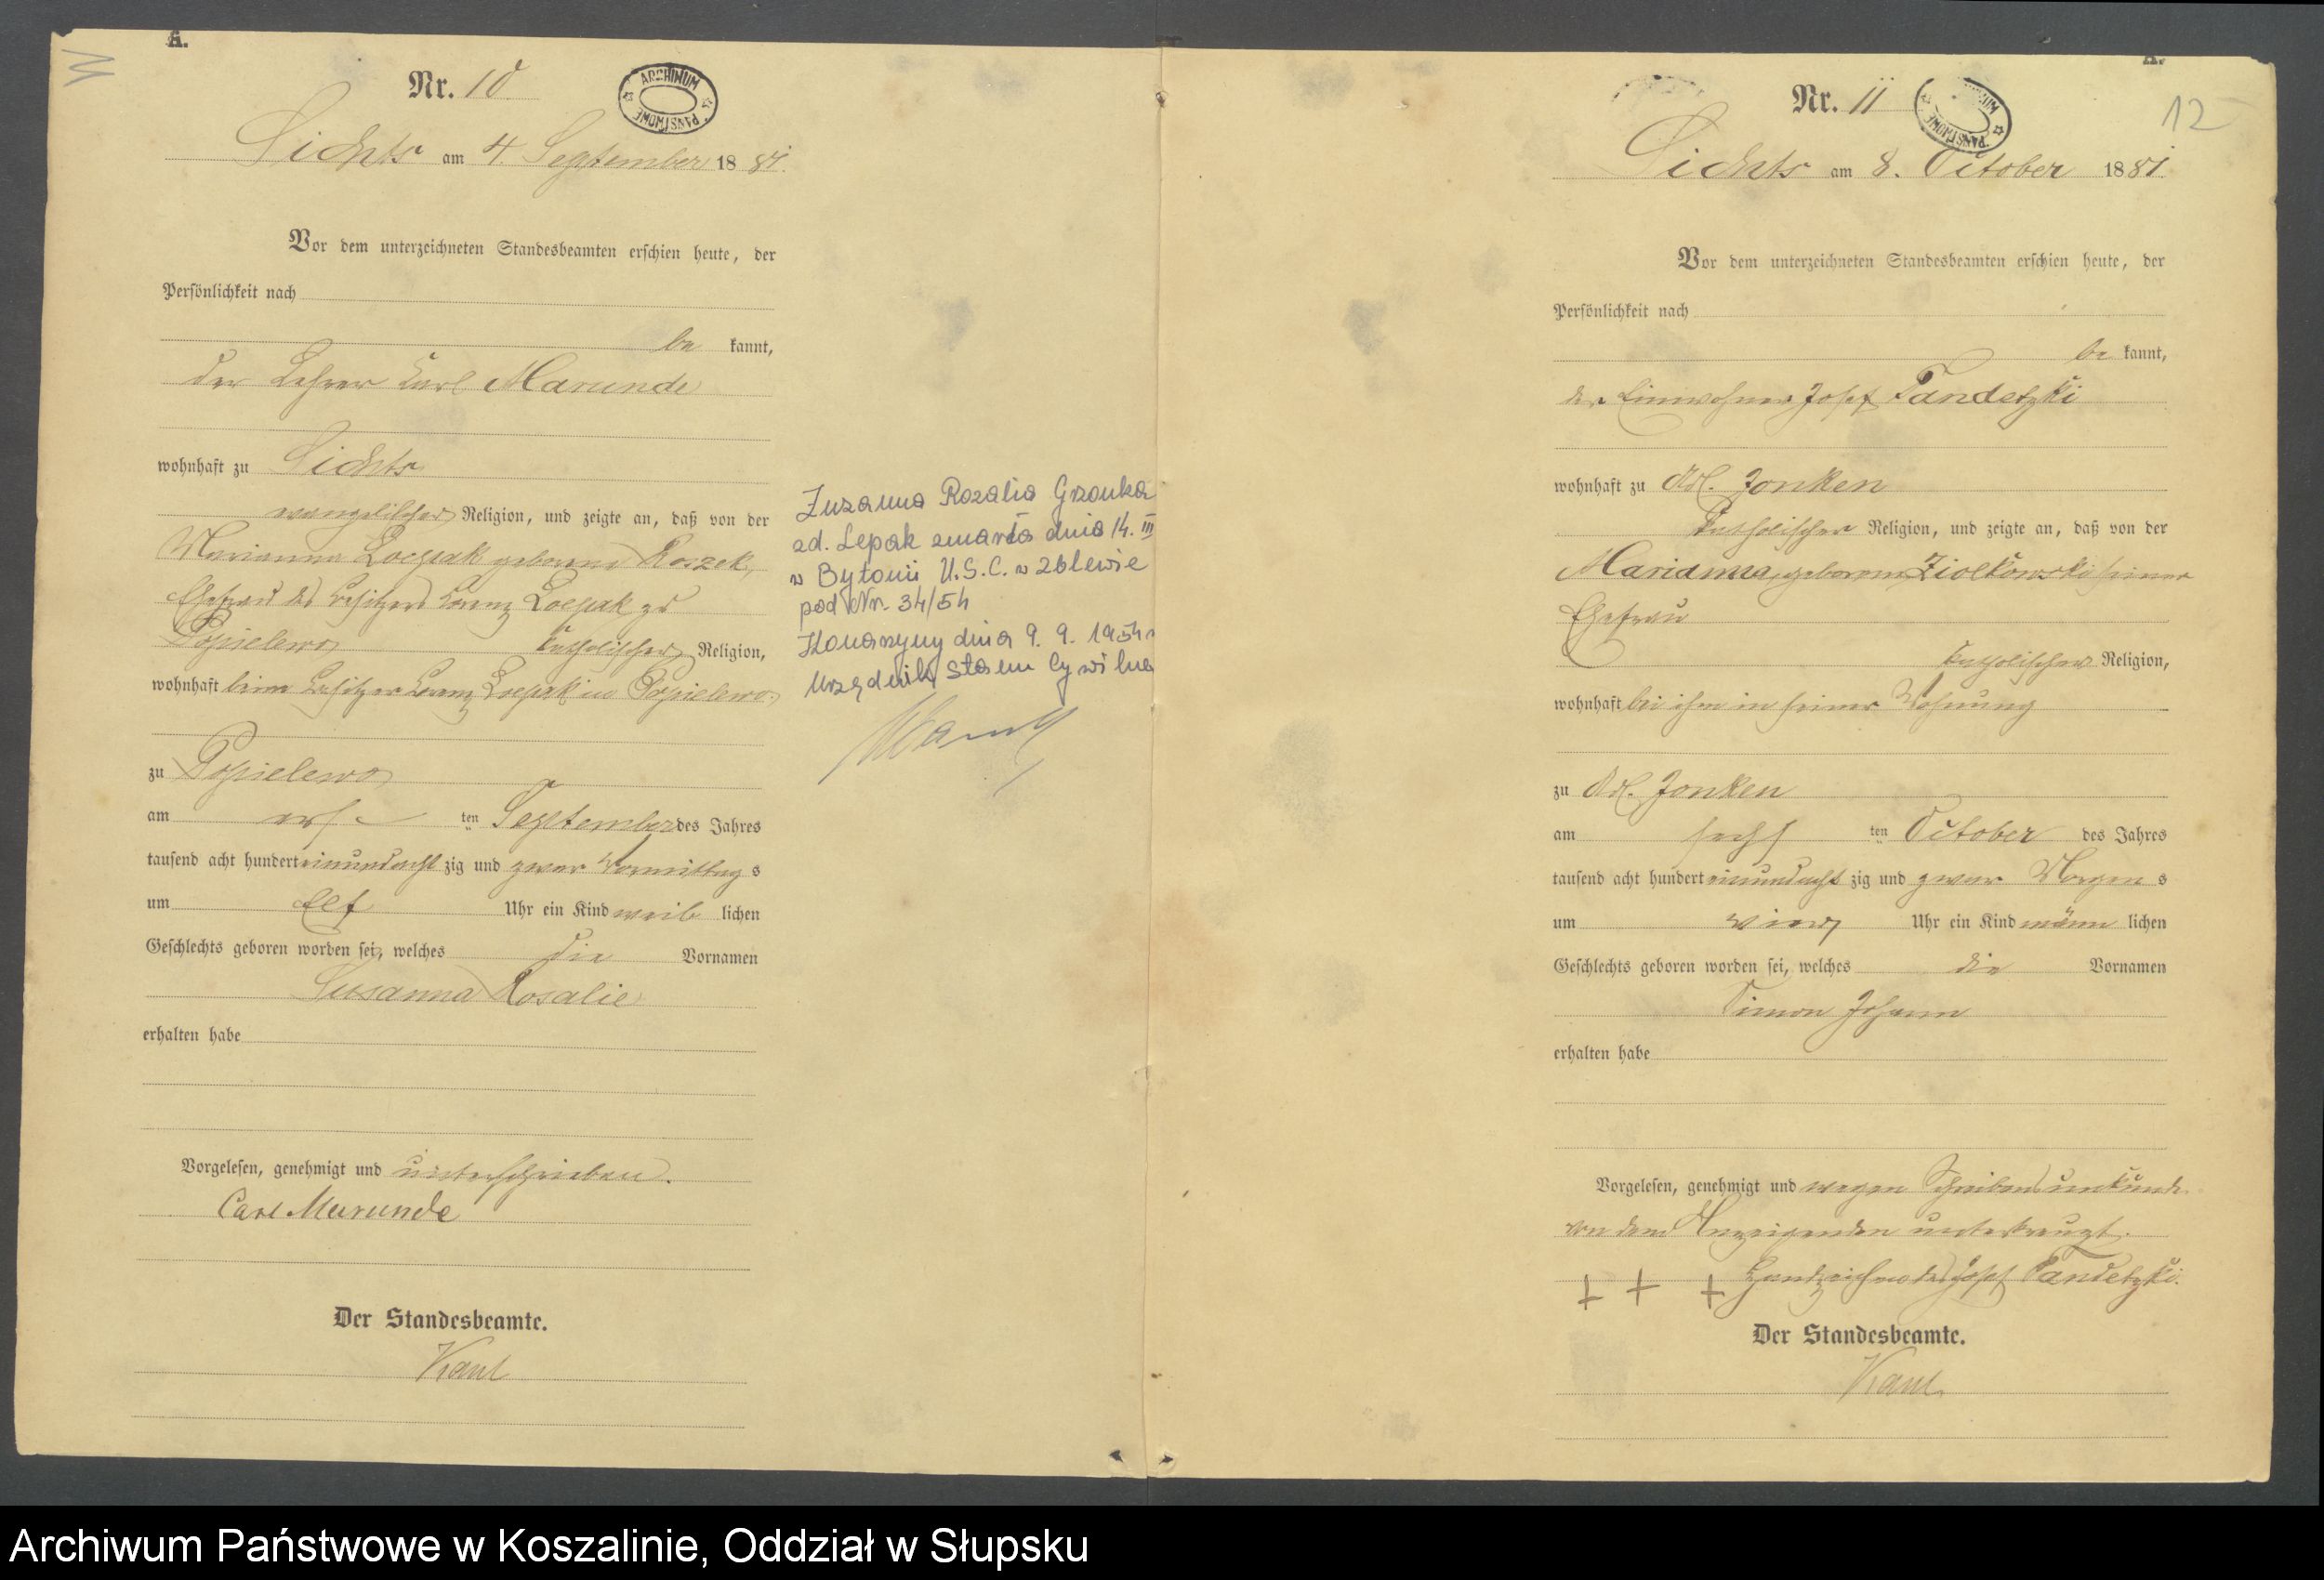 A.
Nr. 10
ARCHIWUM PAŃSTWOWE
Lichts am 4. September 1881.
Vor dem unterzeichneten Standesbeamten erschien heute, der
Persönlichkeit nach
be kannt,
der Lehrer Carl Marunde
wohnhaft zu Sichts
evangelischer Religion, und zeigte an, daß von der
Marianna Loepak geborene Koszek,
Ehefrau des Besitzers Lorenz Loepak zu
Popielewo katholischer Religion,
wohnhaft beim Besitzer Lorenz Loepak in Popielewo
zu Popielewo
am ersten September des Jahres
tausend acht hundert einundacht zig und zwar Vormittag s
um elf Uhr ein Kind weib lichen
Geschlechts geboren worden sei, welches die Vornamen
Susanna Rosalie
erhalten habe
Vorgelesen, genehmigt und unterschrieben.
Carl Marunde
Der Standesbeamte.
Kaul
Zuzanna Rozalia Grzonka
zd. Lepak zmarła dnia 14. III
w Bytonii U.S.C. w Zblewie
pod Nr. 34/54
Konarzyny dnia 9. 9. 1954 r
Urzędnik Stanu Cywilne
A.
Nr. 11
ARCHIWUM PAŃSTWOWE
12
Sichts am 8. October 1881.
Vor dem unterzeichneten Standesbeamten erschien heute, der
Persönlichkeit nach
be kannt,
der Einwohner Josef Tandetzki
wohnhaft zu Adl. Jonken
katholischer Religion, und zeigte an, daß von der
Marianna, geborene Ziolkowski seiner
Ehefrau
katholischer Religion,
wohnhaft bei ihm in seiner Wohnung
zu Adl. Jonken
am sechs ten October des Jahres
tausend acht hundert einundacht zig und zwar Morgen s
um vier Uhr ein Kind männ lichen
Geschlechts geboren worden sei, welches die Vornamen
Simon Johann
erhalten habe
Vorgelesen, genehmigt und wegen Schreibensunkunde
von dem Anzeigenden unterkreuzt.
+ + + Handzeichen des Josef Tandetzki.
Der Standesbeamte.
Kaul.
Archiwum Państwowe w Koszalinie, Oddział w Słupsku